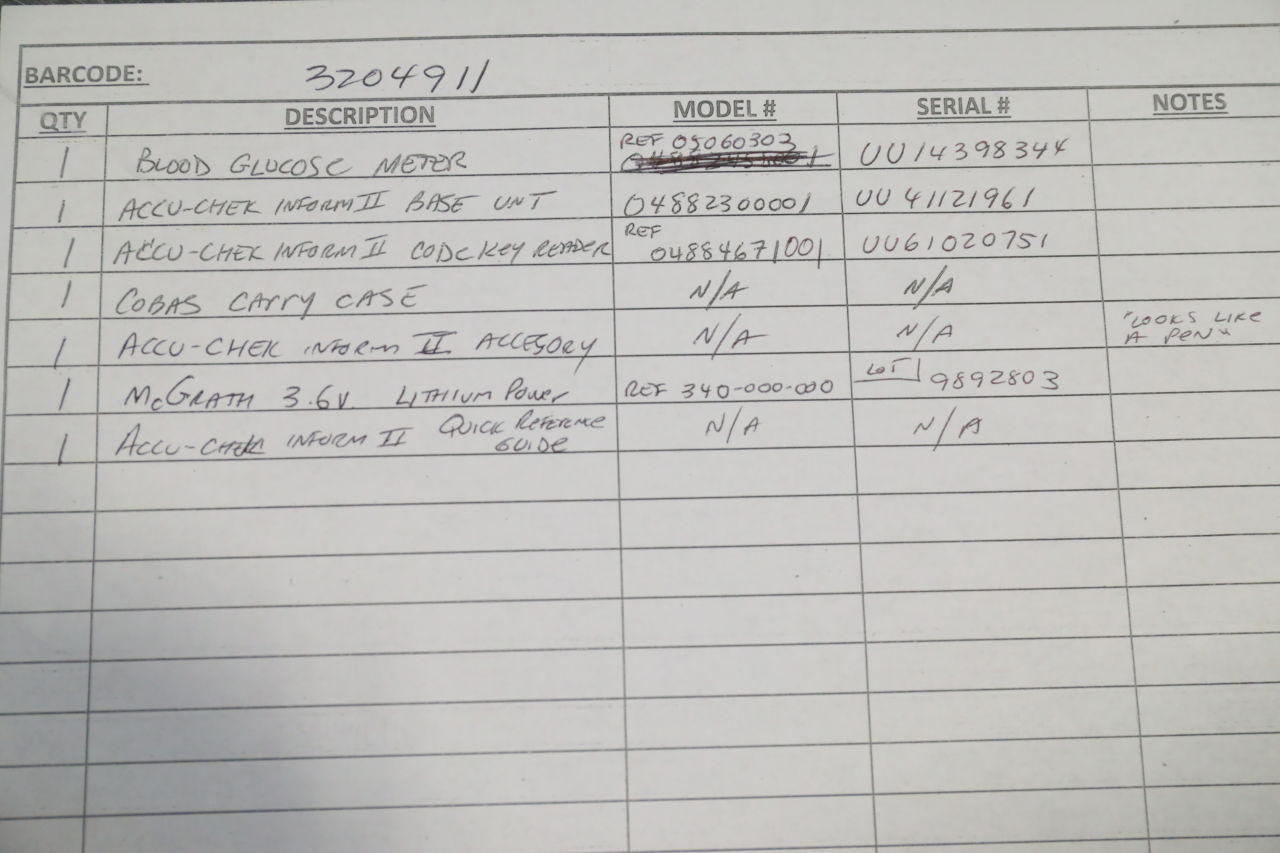 BARCODE: 3204911
QTY DESCRIPTION MODEL # SERIAL # NOTES
1 BLOOD GLUCOSE METER REF 05060303 UU14398344
1 ACCU-CHEK INFORM II BASE UNT 04882300001 UU 41121961
1 ACCU-CHEK INFORM II CODE KEY READER REF 04884671001 UU61020751
1 COBAS CARRY CASE N/A N/A
1 ACCU-CHEK INFORM II ACCESORY N/A N/A "LOOKS LIKE
A PEN"
1 McGRATH 3.6V. LITHIUM POWER REF 340-000-000 LOT 9892803
1 ACCU-CHEK INFORM II QUICK REFERENCE N/A N/A
GUIDE